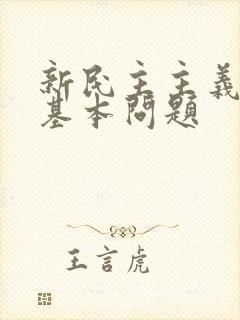 新民主主義
基本問題
王言虎